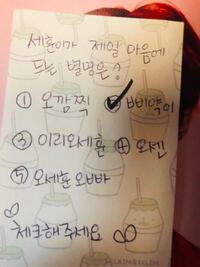 세훈이가 제일 마음에
드는 별명은?
① 오깜찍 ② 삐약이
③ 이리와세훈 ④ 오센
⑤ 오세훈 오빠
체크해주세요